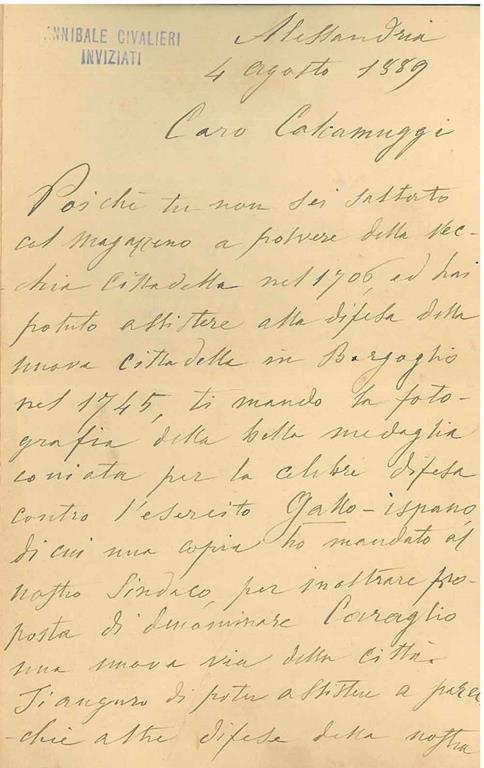 ANNIBALE CIVALIERI
INVIZIATI
Alessandria
4 agosto 1889
Caro Calcamuggi
Poichè tu non sei saltato
col Magazzeno a polvere della Vec-
-chia Cittadella nel 1706, ed hai
potuto assistere alla difesa della
nuova cittadella in Borgoglio
nel 1745, ti mando la foto-
grafia della bella medaglia
coniata per la celebre difesa
contro l'esercito Gallo-ispano,
di cui una copia ho mandato al
nostro Sindaco, per inoltrare pro-
posta di denominare Caraglio
una nuova via della città.
Ti auguro di poter assistere a parec
-chie altre difese della nostra